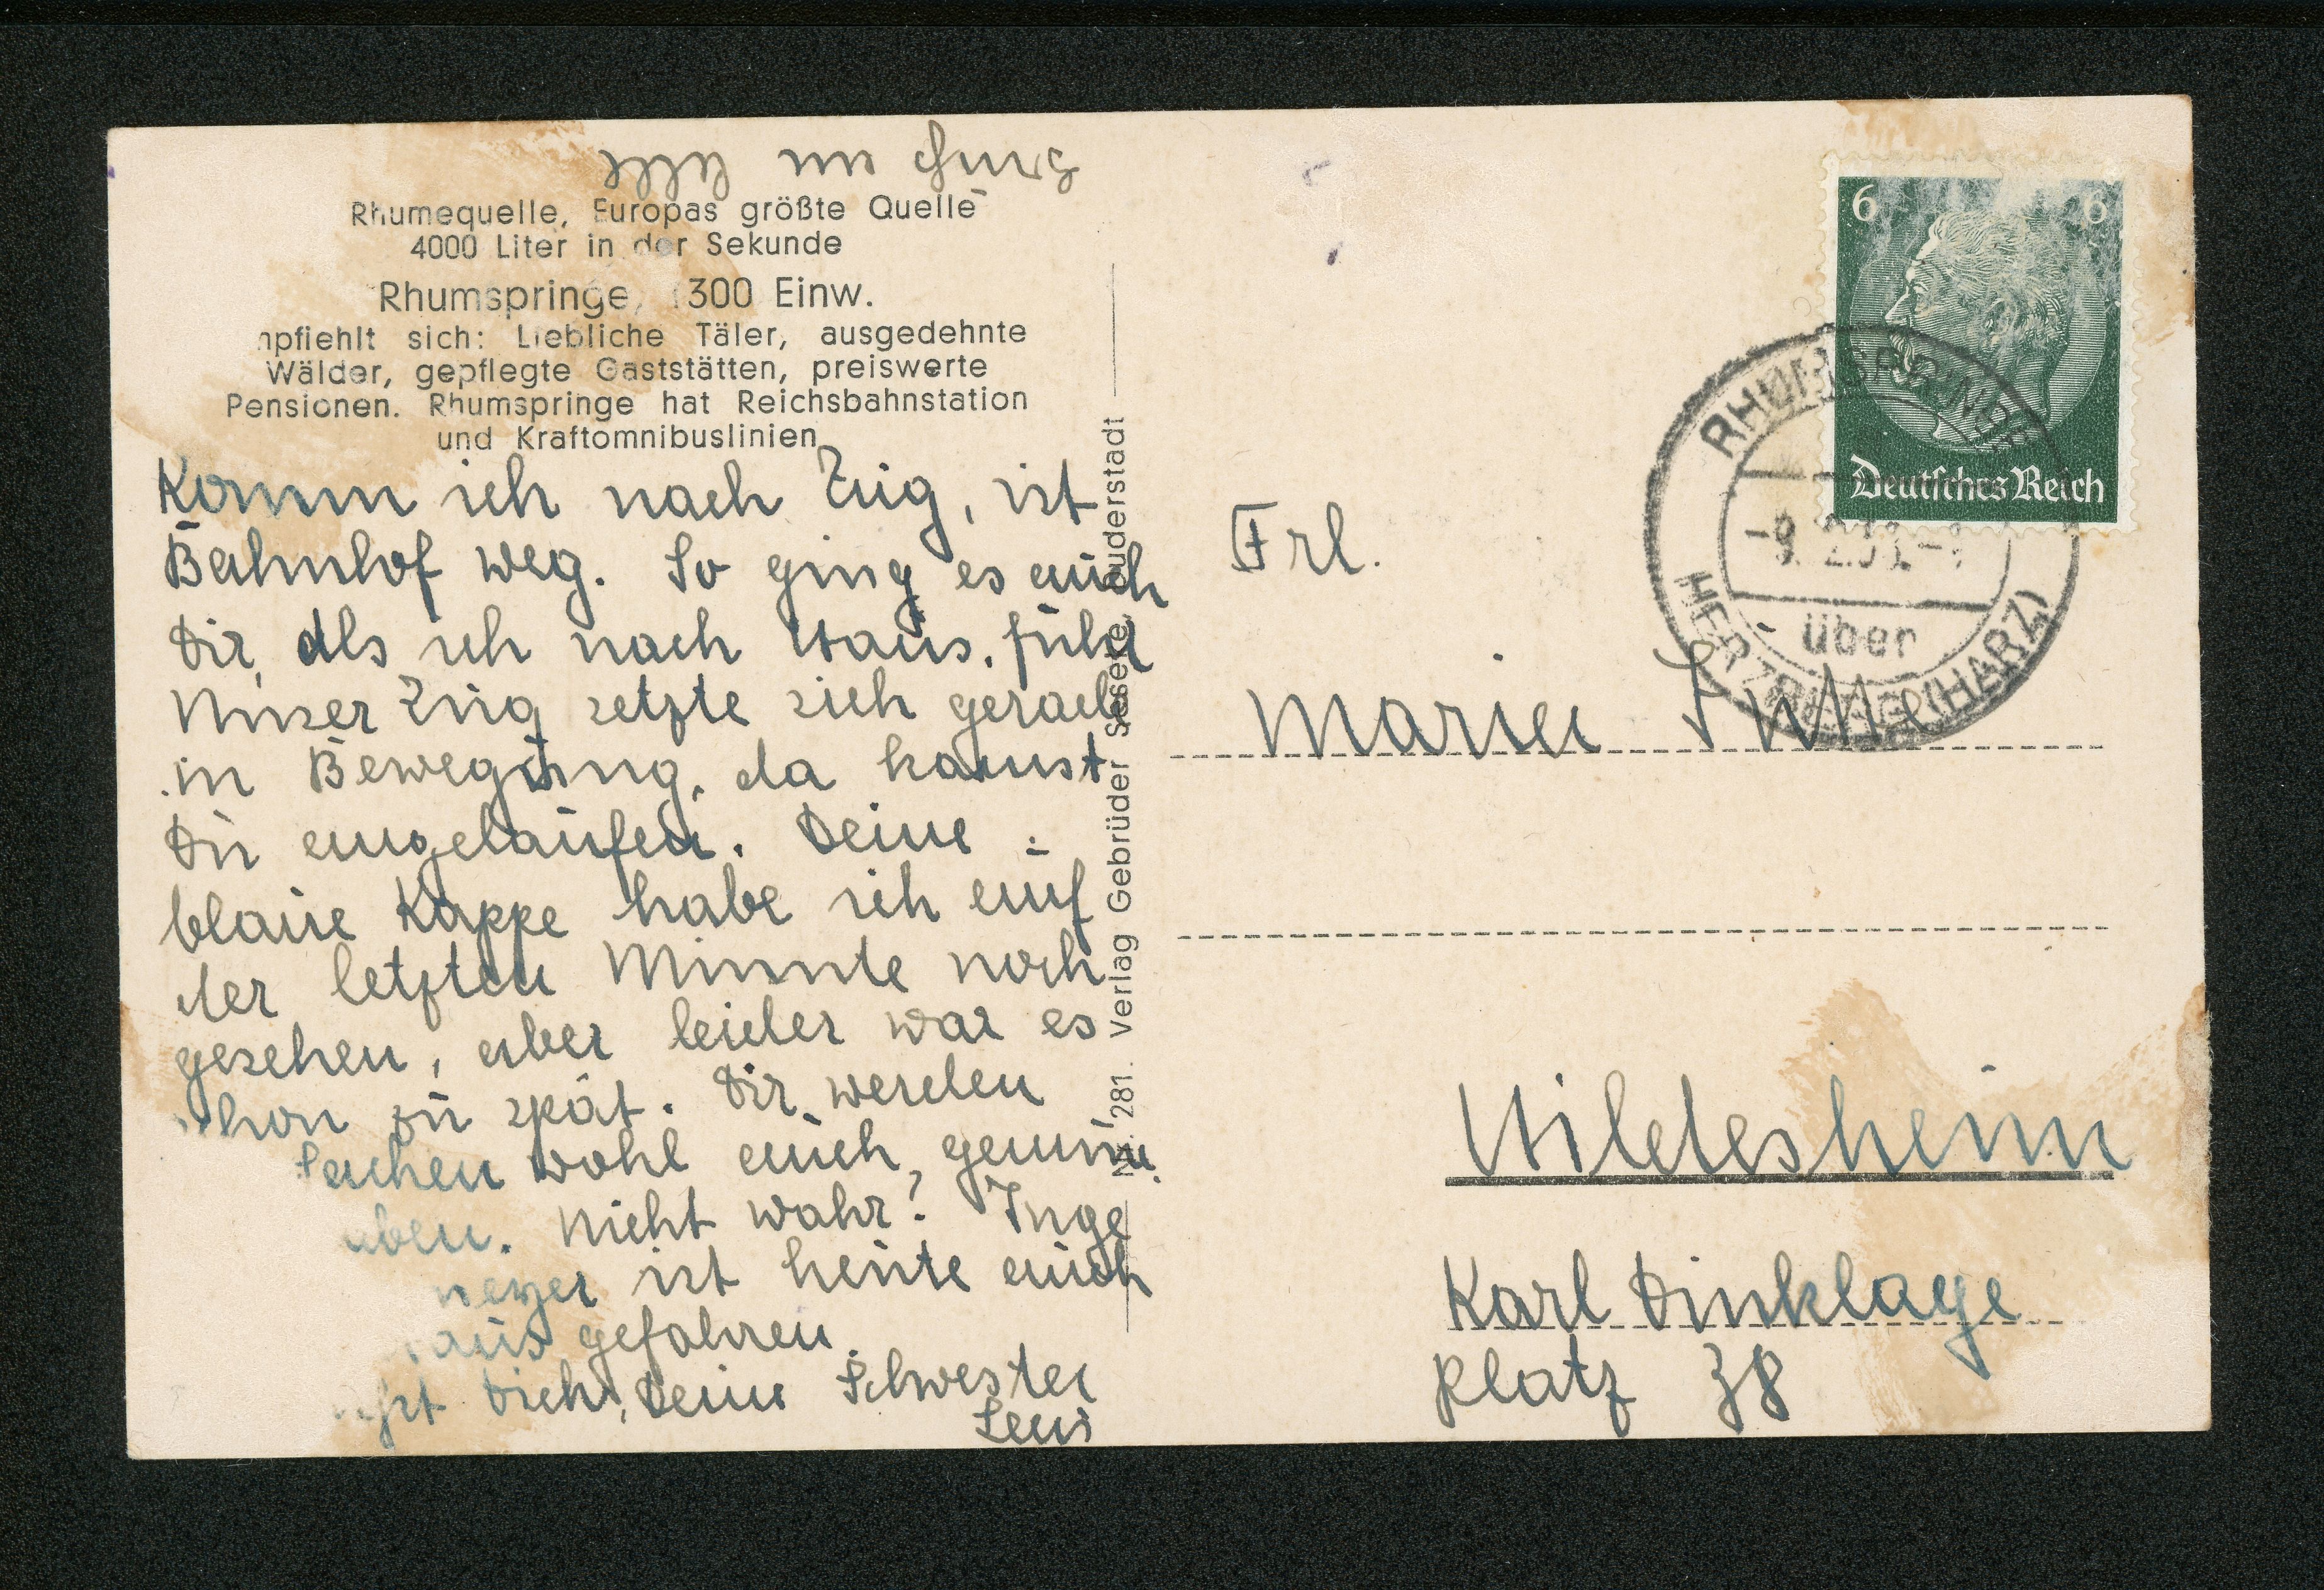 Rhumequelle, Europas größte Quelle
4000 Liter in der Sekunde
Rhumspringe, 300 Einw.
pfiehlt sich: Liebliche Täler, ausgedehnte
Wälder, gepflegte Gaststätten, preiswerte
Pensionen. Rhumspringe hat Reichsbahnstation
und Kraftomnibuslinien
Komm ich nach Zug, ist
Bahnhof weg. So ging es auch
Dir, als ich nach Haus. fuhr
Unser Zug setzte sich gerade
in Bewegung, da kamst
Du angelaufen. Deine
blaue Kappe habe ich auf
der letzten Minute noch
gesehen, aber leider war es
schon zu spät. Dir werden
Sachen wohl auch
aben. Nicht wahr? Inge
meyer ist heute auch
aus gefahren.
Dich, Deine Schwester
Leni
Nr. 281. Verlag Gebrüder Duderstadt
6 6
Deutsches Reich
RHUMSPRINGE
über
HERZBERG (HARZ)
Frl.
Maria
Hildesheim
Karl Dinklage
Platz 38